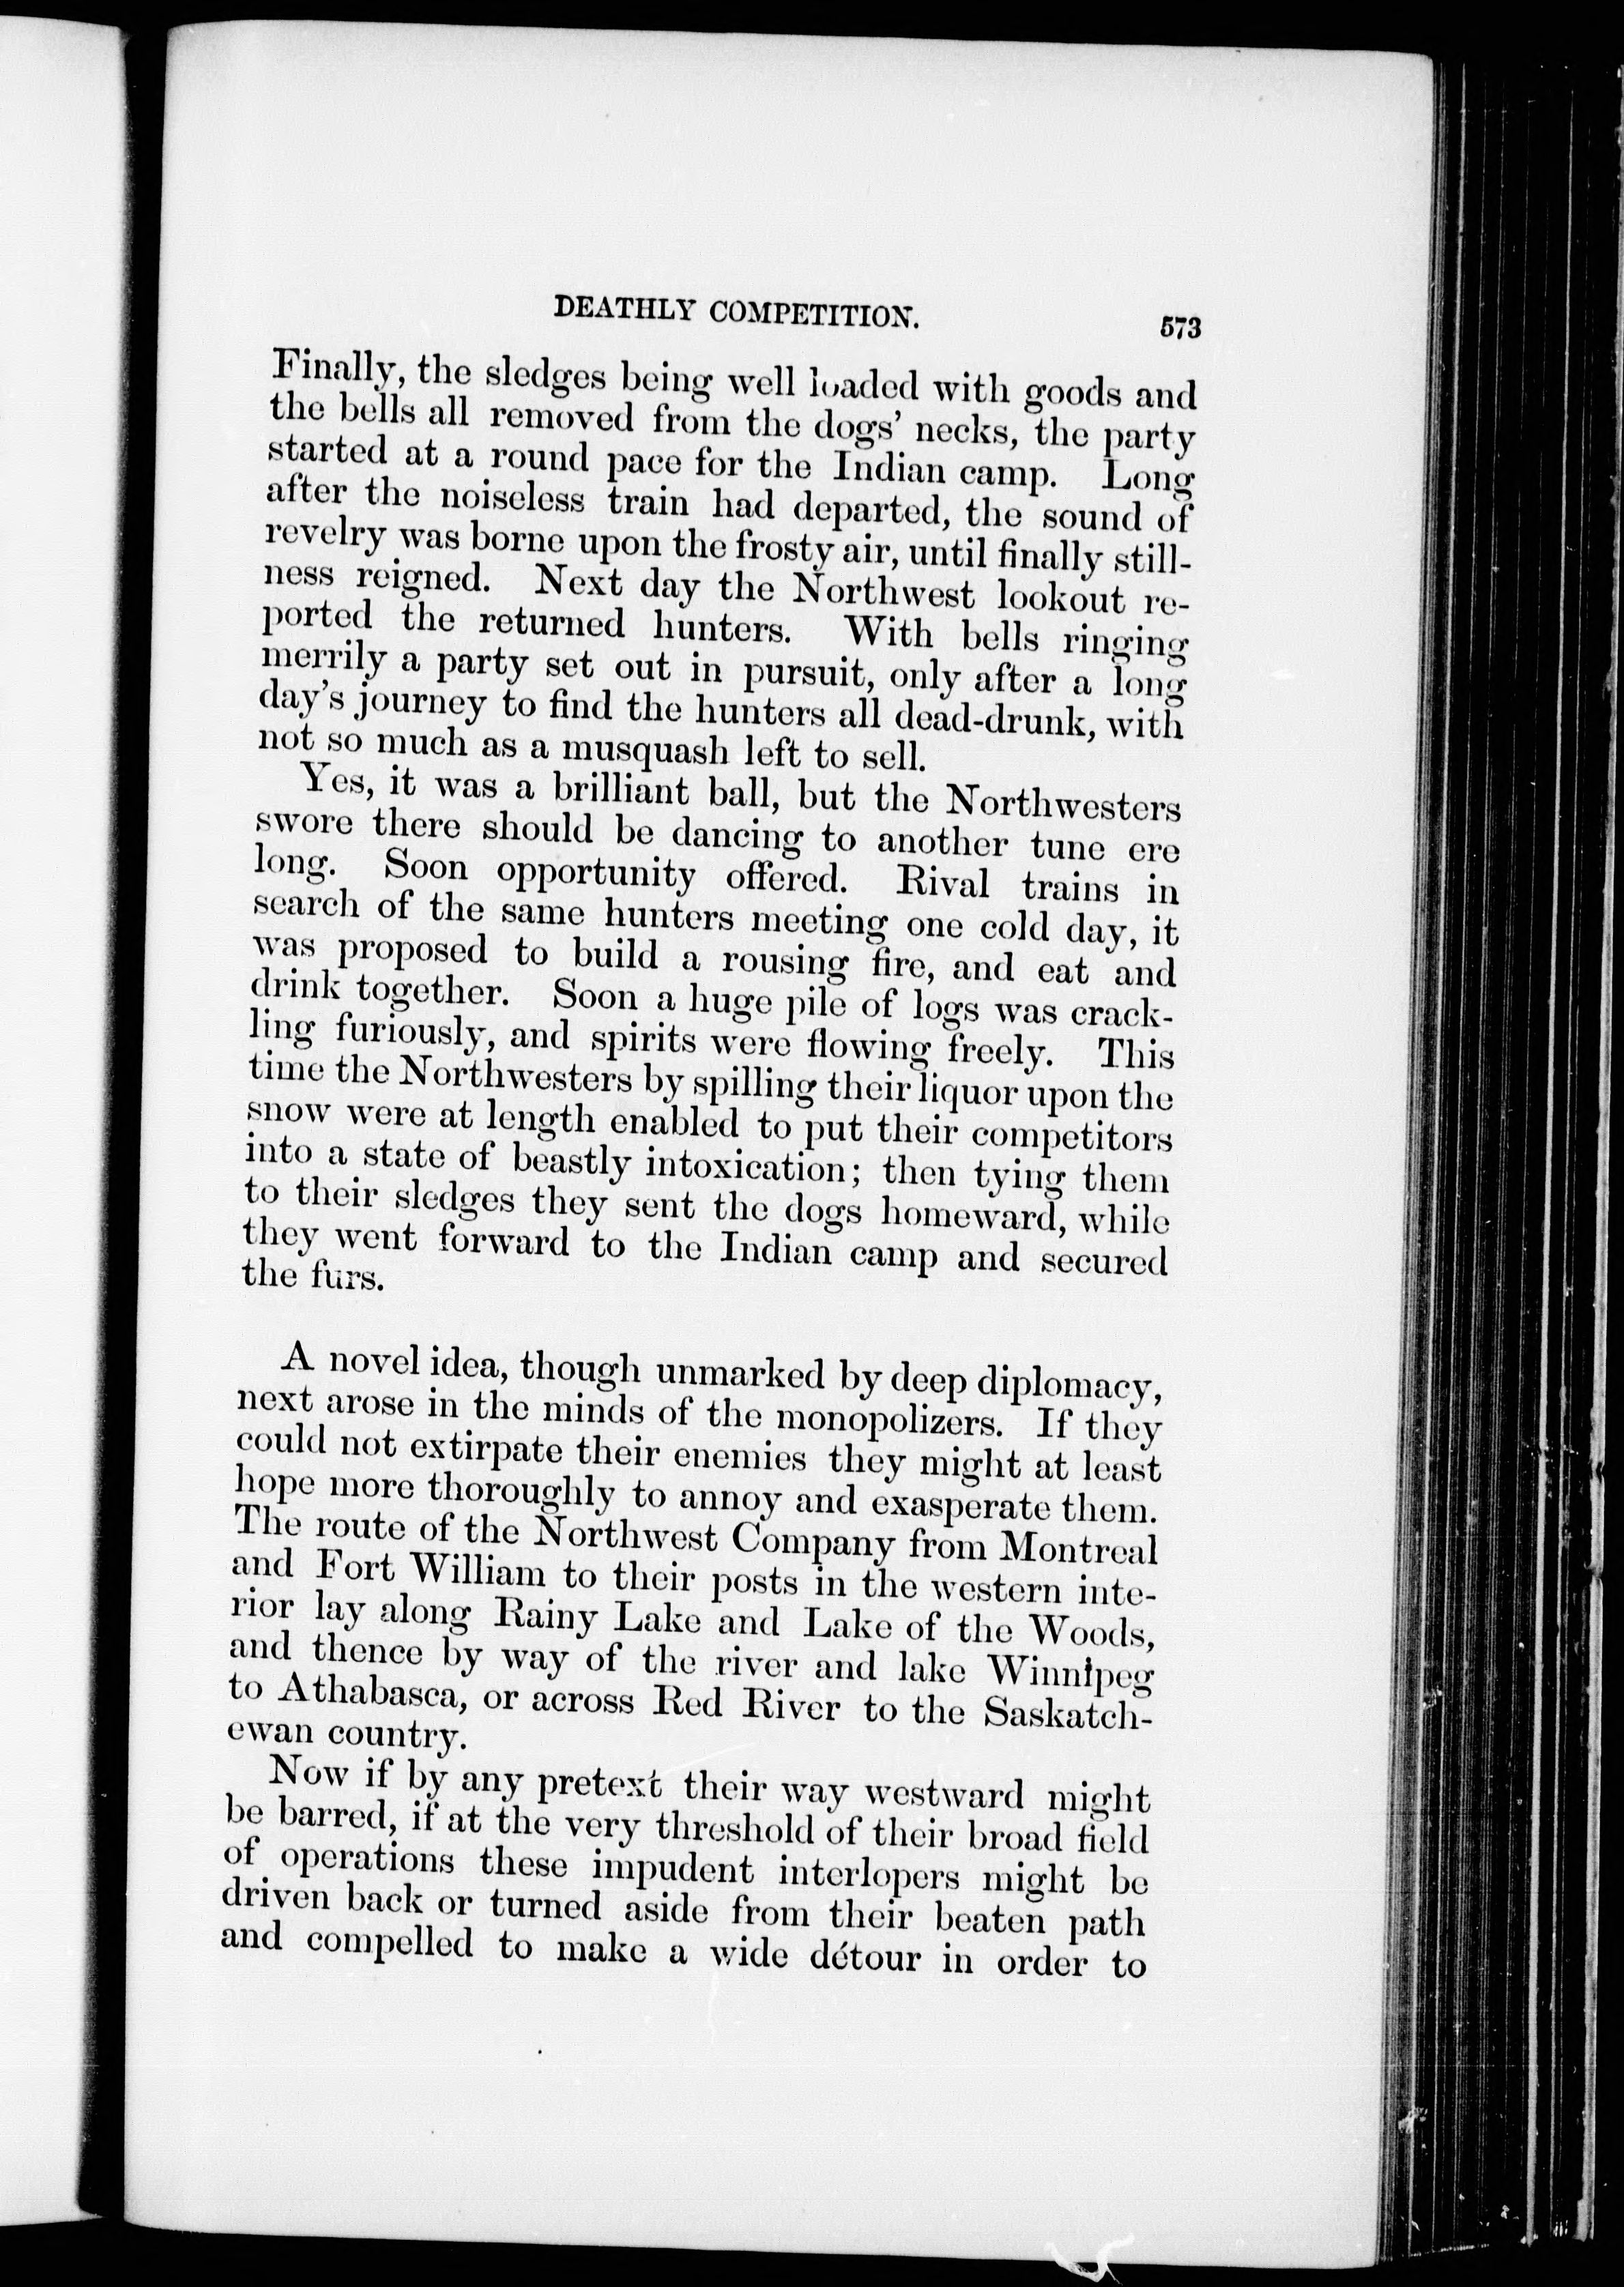 DEATHLY COMPETITION. 573
Finally, the sledges being well loaded with goods and
the bells all removed from the dogs' necks, the party
started at a round pace for the Indian camp. Long
after the noiseless train had departed, the sound of
revelry was borne upon the frosty air, until finally still-
ness reigned. Next day the Northwest lookout re-
ported the returned hunters. With bells ringing
merrily a party set out in pursuit, only after a long
day's journey to find the hunters all dead-drunk, with
not so much as a musquash left to sell.
Yes, it was a brilliant ball, but the Northwesters
swore there should be dancing to another tune ere
long. Soon opportunity offered. Rival trains in
search of the same hunters meeting one cold day, it
was proposed to build a rousing fire, and eat and
drink together. Soon a huge pile of logs was crack-
ling furiously, and spirits were flowing freely. This
time the Northwesters by spilling their liquor upon the
snow were at length enabled to put their competitors
into a state of beastly intoxication; then tying them
to their sledges they sent the dogs homeward, while
they went forward to the Indian camp and secured
the furs.
A novel idea, though unmarked by deep diplomacy,
next arose in the minds of the monopolizers. If they
could not extirpate their enemies they might at least
hope more thoroughly to annoy and exasperate them.
The route of the Northwest Company from Montreal
and Fort William to their posts in the western inte-
rior lay along Rainy Lake and Lake of the Woods,
and thence by way of the river and lake Winnipeg
to Athabasca, or across Red River to the Saskatch-
ewan country.
Now if by any pretext their way westward might
be barred, if at the very threshold of their broad field
of operations these impudent interlopers might be
driven back or turned aside from their beaten path
and compelled to make a wide détour in order to